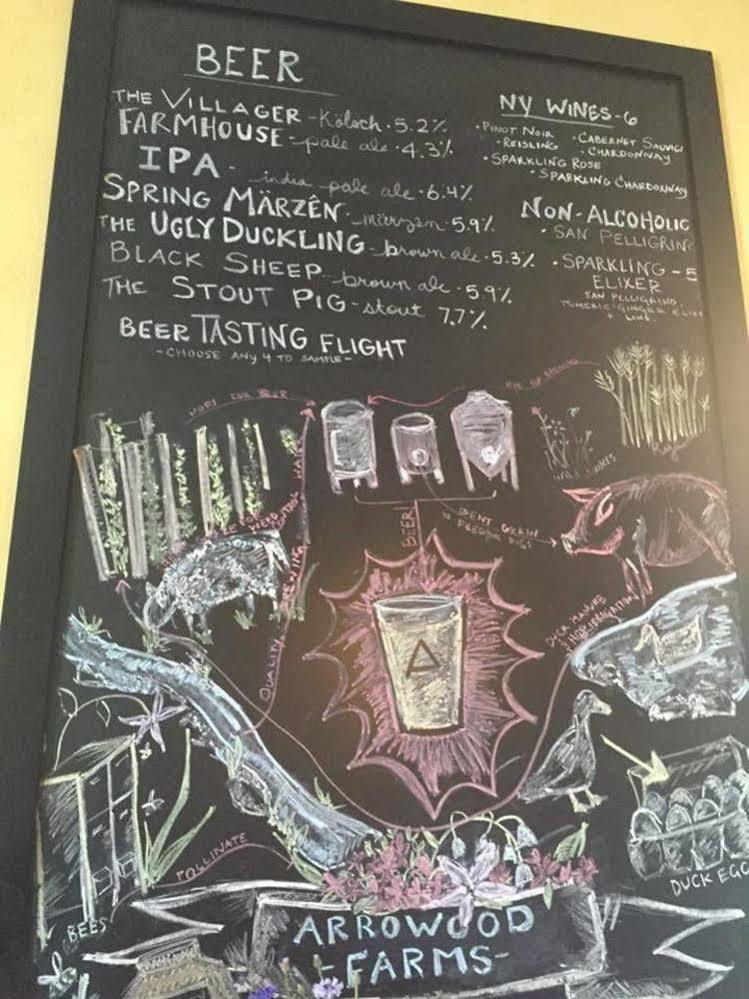 BEER
THE VILLAGER - Kölsch · 5.2%
FARMHOUSE - pale ale · 4.3%
IPA - india pale ale · 6.4%
SPRING MÄRZÊN - märzen · 5.9%
THE UGLY DUCKLING - brown ale · 5.3%
BLACK SHEEP - brown ale · 5.9%
THE STOUT PIG - stout 7.7%
BEER TASTING FLIGHT
- CHOOSE ANY 4 TO SAMPLE -
NY WINES - 6
· PINOT NOIR · CABERNET SAUVIG
· REISLING · CHARDONNAY
· SPARKLING ROSE
· SPARKLING CHARDONNAY
NON-ALCOHOLIC
· SAN PELLIGRIN
· SPARKLING - 5
ELIXER
SAN PELLIGRINO
TUMERIC-GINGER
+ LIME
HOPS FOR BEER
BEER
SPENT GRAIN
FEEDING PIGS
QUALITY
WATER
DUCK MANURE
HOP IRRIGATION
POLLINATE
BEES
DUCK EGG
ARROWOOD
-FARMS-